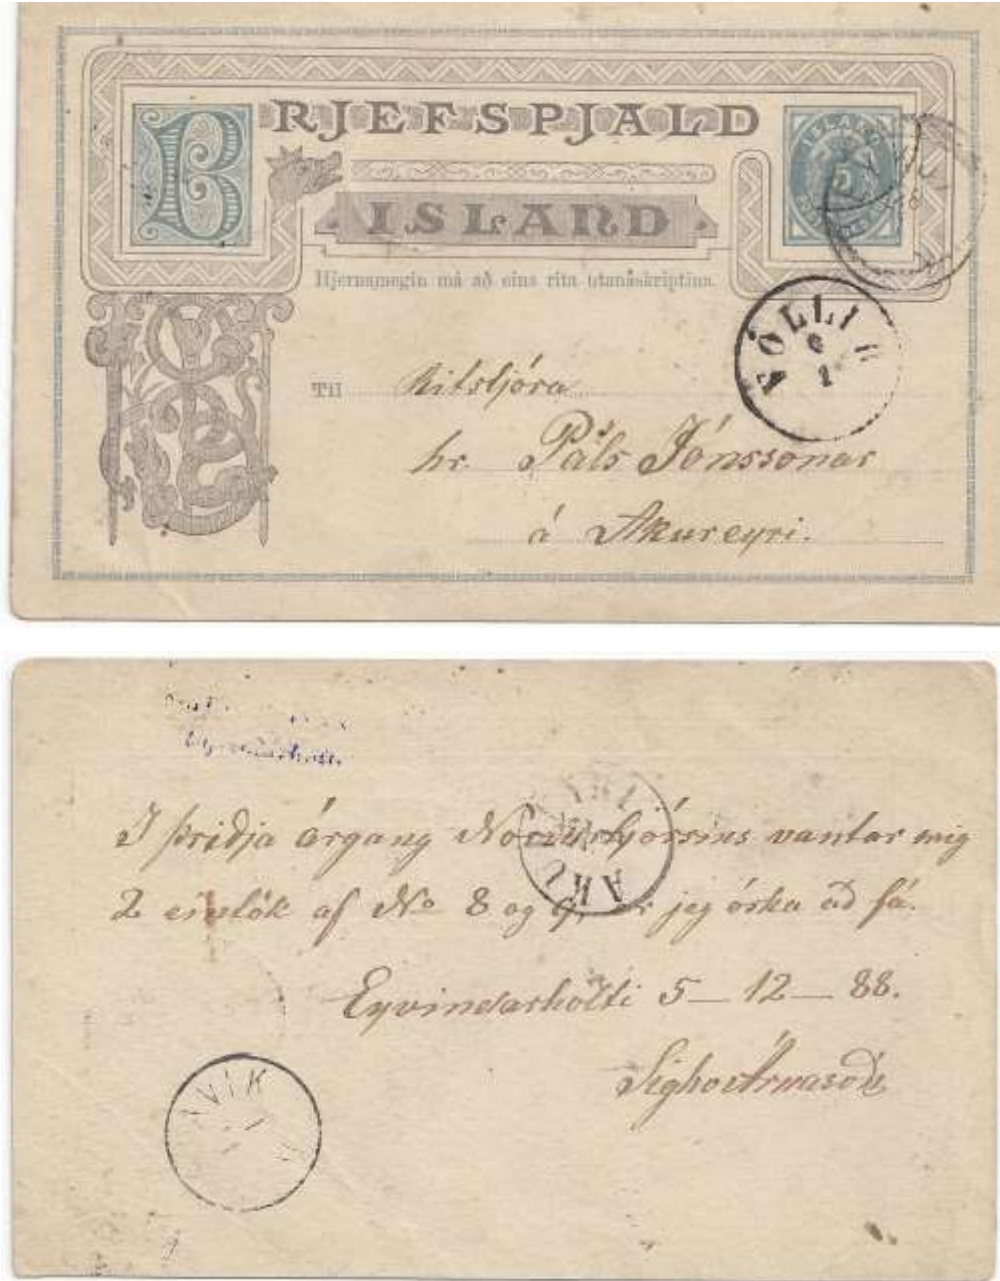 BRJEFSPJALD
ISLAND
Hjernamegin má að eins rita utanáskriptina.
ISLAND
5
VÖLLUR
6
1
Til Ritstjóra
hr. Páls Jónssonar
á Akureyri.
Í þriðja árgang Norðurljóssins vantar mig
2 eintök af No 8 og 9, er jeg óska að fá.
Eyvindarholti 5 – 12 – 88.
Sighv Árnason
AKU
VÍK